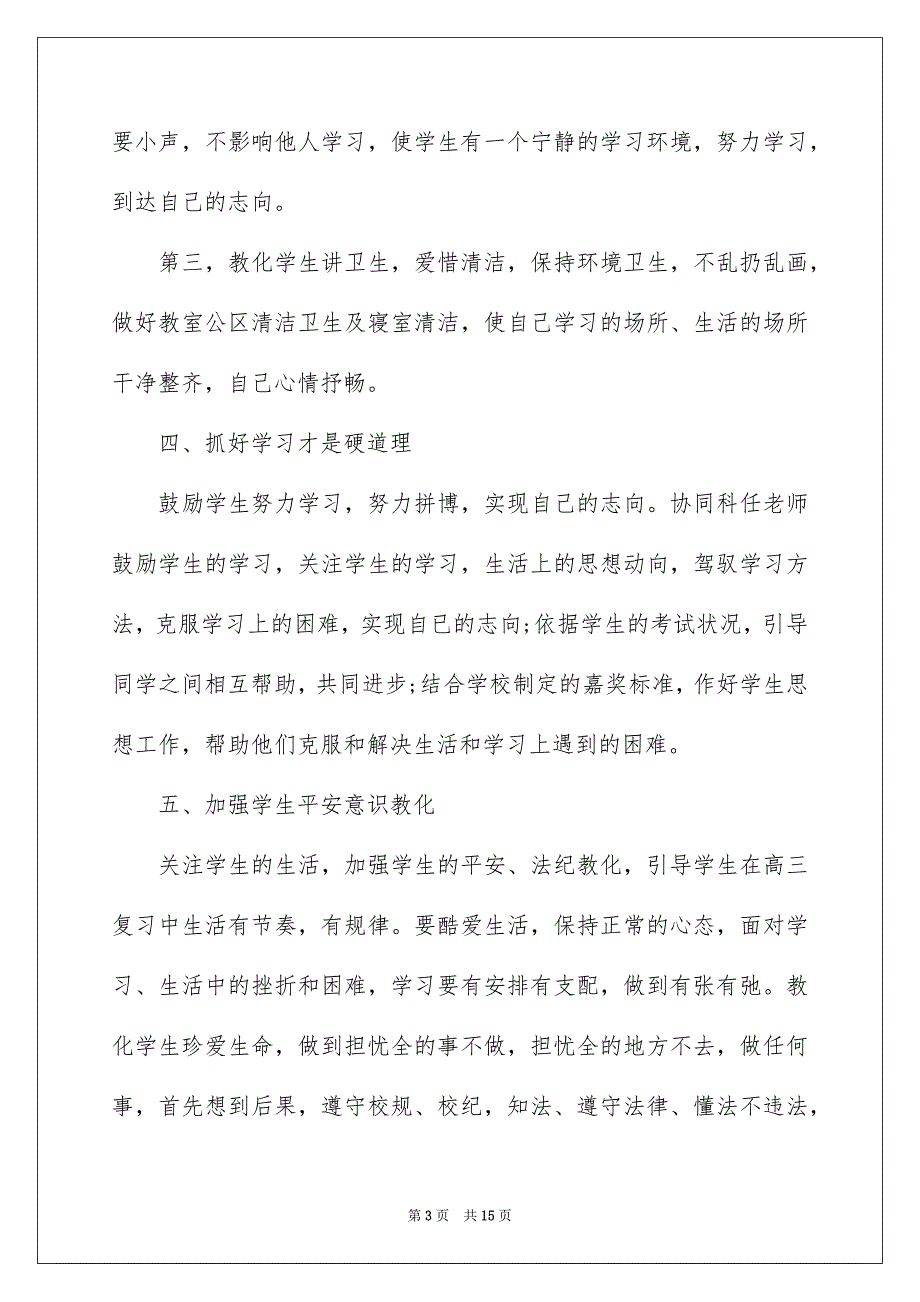 要小声，不影响他人学习，使学生有一个宁静的学习环境，努力学习，
到达自己的志向。
第三，教化学生讲卫生，爱惜清洁，保持环境卫生，不乱扔乱画，
做好教室公区清洁卫生及寝室清洁，使自己学习的场所、生活的场所
干净整齐，自己心情抒畅。
四、抓好学习才是硬道理
鼓励学生努力学习，努力拼博，实现自己的志向。协同科任老师
鼓励学生的学习，关注学生的学习，生活上的思想动向，驾驭学习方
法，克服学习上的困难，实现自已的志向;依据学生的考试状况，引导
同学之间相互帮助，共同进步;结合学校制定的嘉奖标准，作好学生思
想工作，帮助他们克服和解决生活和学习上遇到的困难。
五、加强学生平安意识教化
关注学生的生活，加强学生的平安、法纪教化，引导学生在高三
复习中生活有节奏，有规律。要酷爱生活，保持正常的心态，面对学
习、生活中的挫折和困难，学习要有安排有支配，做到有张有弛。教
化学生珍爱生命，做到担忧全的事不做，担忧全的地方不去，做任何
事，首先想到后果，遵守校规、校纪，知法、遵守法律、懂法不违法，
第3页 共15页